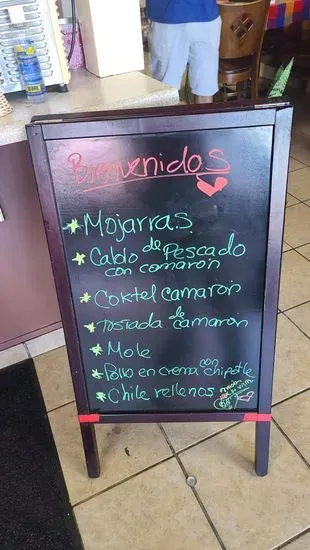 Bienvenidos
* Mojarras
* Cablo de Pescado
con comaron
* Coktel Camaron
* Tostada de camaron
* Mole
* Pollo en crema con chipotle
* Chile rellenos